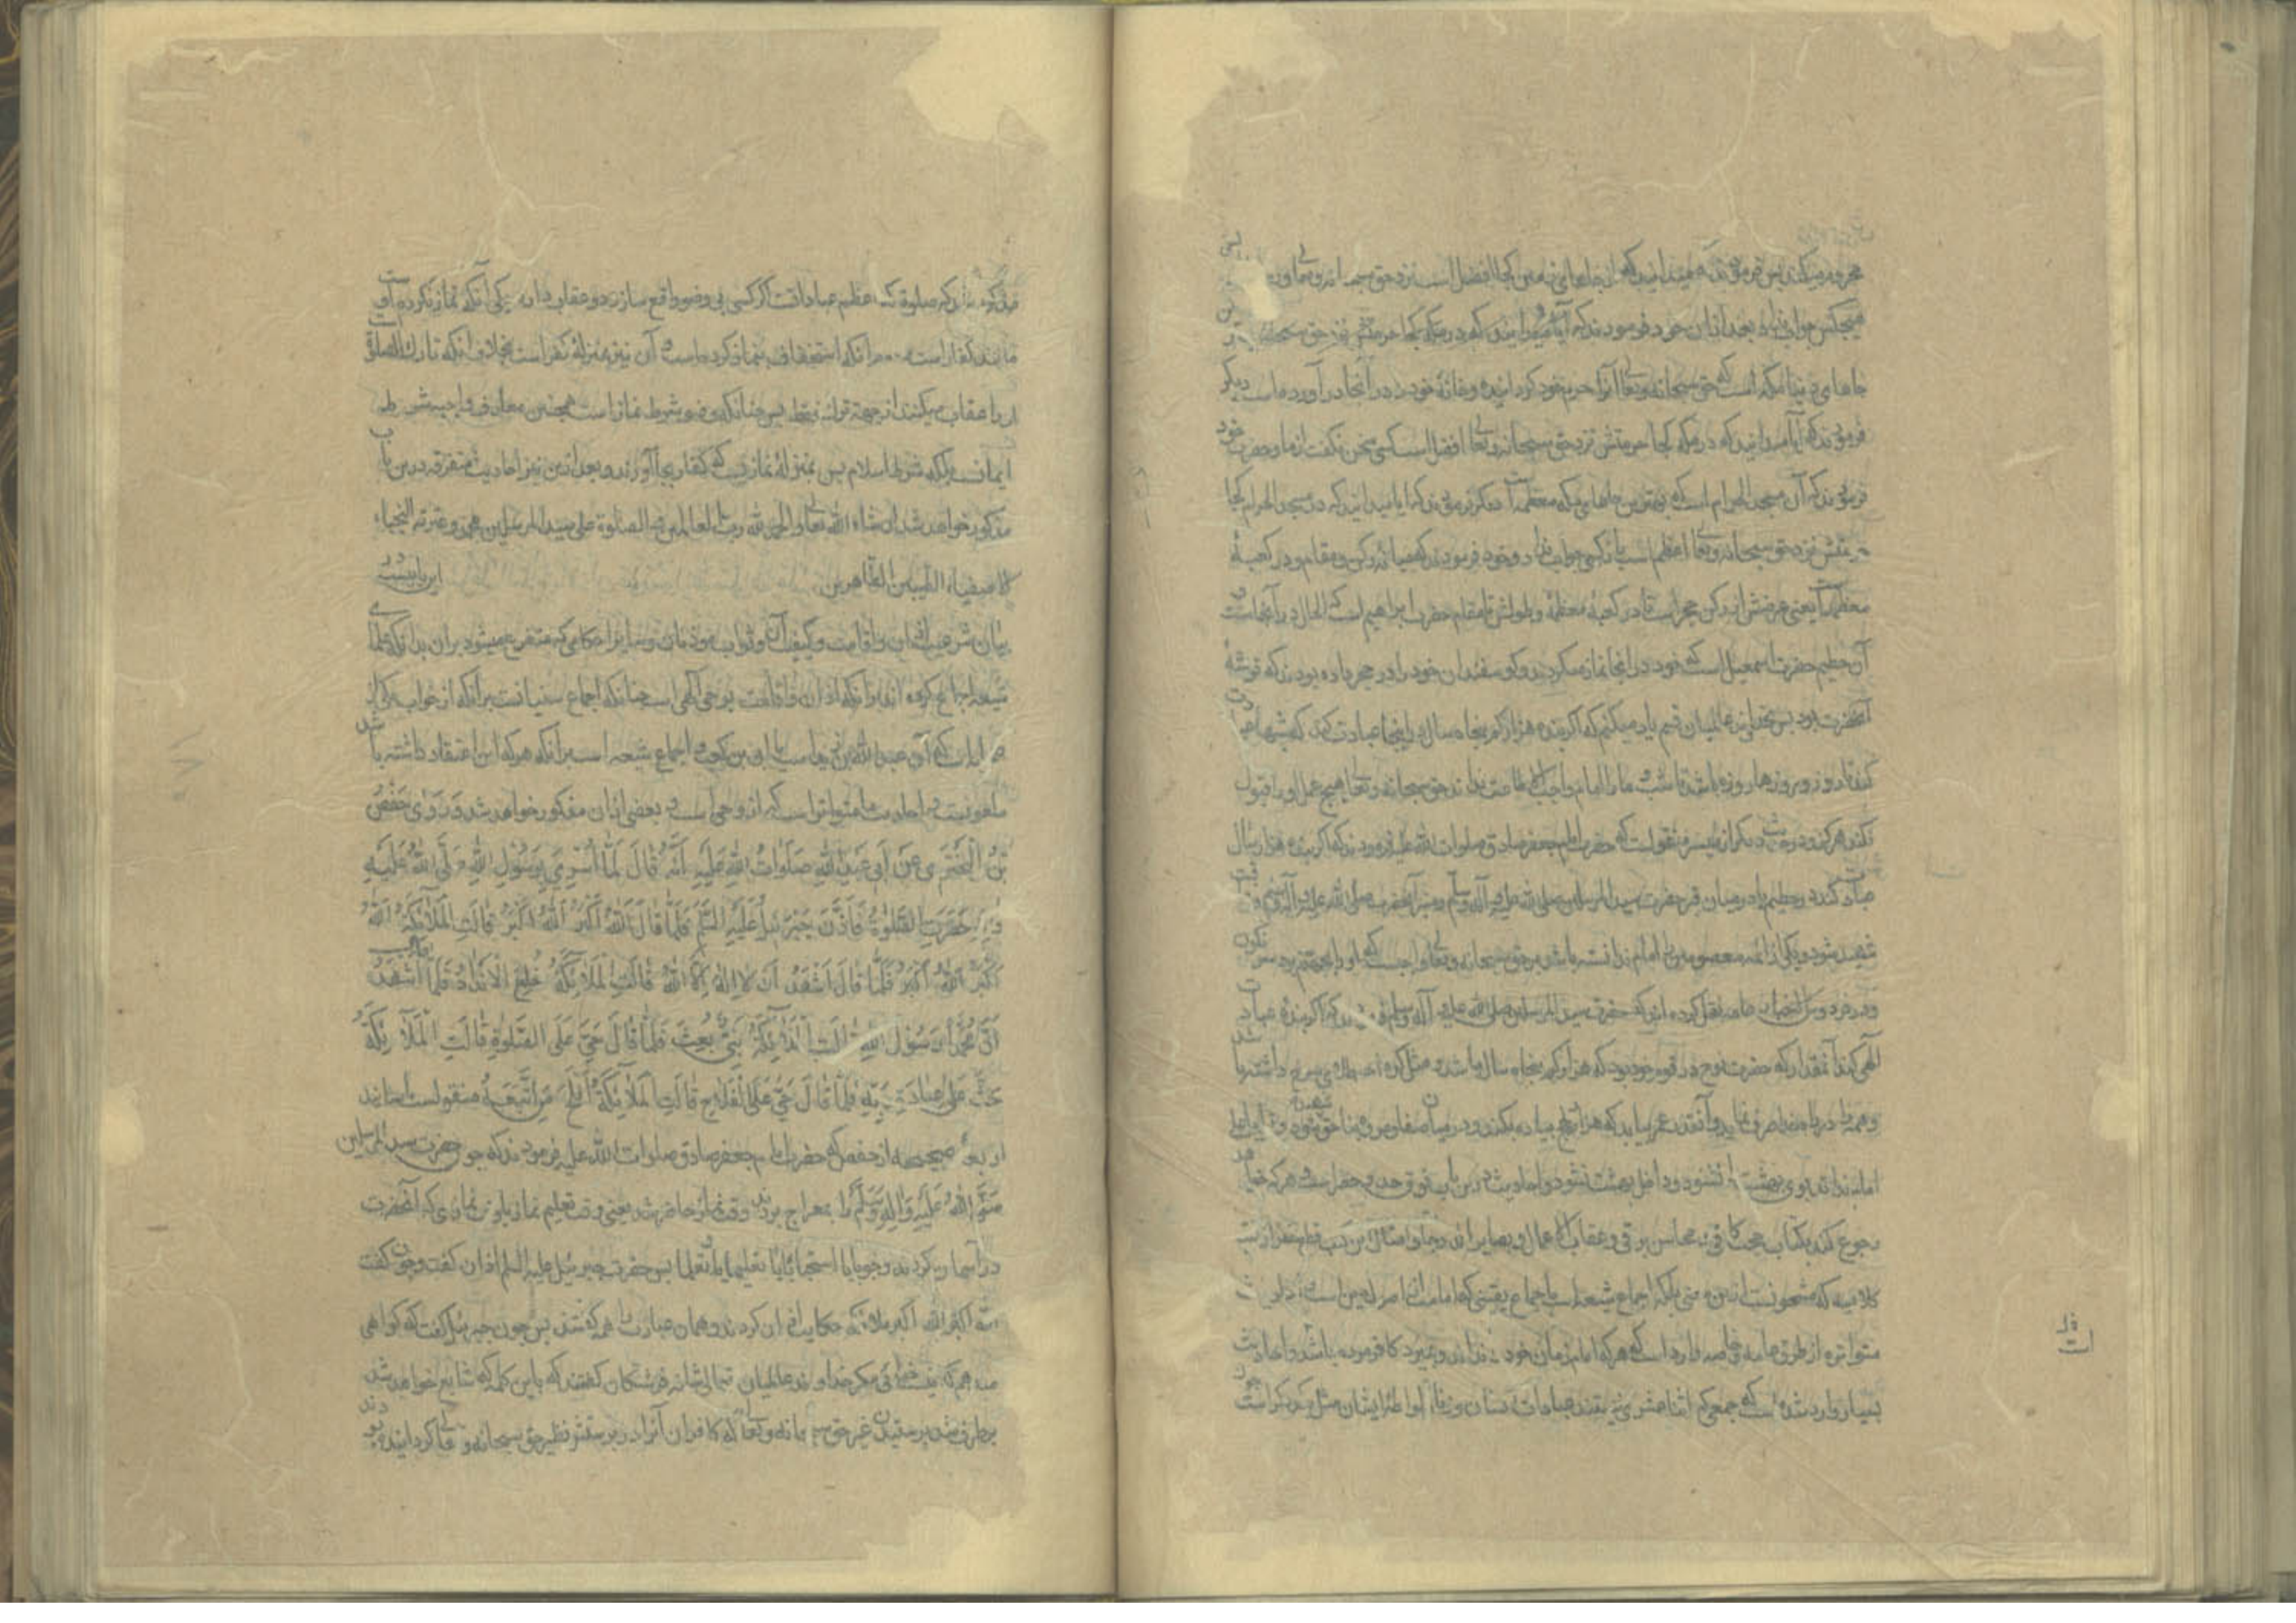 میدانید که از جاهای زمین کجا افضل است نزد حق سبحانه و تعالی
هیچکس جواب نداد بعد از آن خود فرمودند که آیا میدانید که در مکه کجا حرمتش نزد حق سبحانه
جاهای دنیا مکه است که حق سبحانه و تعالی آنرا حرم خود گردانیده و خانهٔ خود در آنجا در آورده است دیگر
فرمودند که آیا میدانید که در مکه کجا حرمتش نزد حق سبحانه و تعالی افضل است کسی سخن نگفت از ما و حضرت خود
فرمودند که آن مسجد الحرام است که بهترین جاهای مکه معظمه است دیگر فرمودند که آیا میدانید که در مسجد الحرام کجا
حرمتش نزد حق سبحانه و تعالی اعظم است باز کسی جواب نداد و خود فرمودند که میانهٔ رکن و مقام و در کعبهٔ
معظمه است یعنی عرضش از رکن حجر است تا در کعبهٔ معظمه و طولش تا مقام حضرت ابراهیم است که الحال در آنجاست و
آن حطیم حضرت اسمعیل است که خود در آنجا نماز میکردند و گوسفندان خود را در حجر باده بودند که توشهٔ
آنحضرت بود پس بخداوند عالمیان قسم یاد میکنم که اگر بنده هزار کم پنجاه سال در اینجا عبادت کند که شبها عبادت
کند تا روز و روزها روزه باشد تا شب و ما را امام واجب الاطاعت نداند حق سبحانه و تعالی هیچ عمل او را قبول
نکند هرگز و در حدیث دیگر از میسر منقولست که حضرت امام جعفر صادق صلوات الله علیه فرمودند که اگر بنده هزار سال
عبادت کند در حطیم یا در میان قبر حضرت سید المرسلین صلی الله علیه و آله و سلم و منبر آنحضرت صلی الله علیه و آله
شهید شود و یکی از ائمه معصومین را امام ندانسته باشد بر حق سبحانه و تعالی واجبست که او را بجهنم برد سرنگون
و در فردوس الاخبار عامه نقل کرده اند که حضرت سید المرسلین صلی الله علیه و آله و سلم فرمودند که اگر بنده عبادت
الهی کند آنمقدار که حضرت نوح در قوم خود بود که هزار کم پنجاه سال باشد و مثل کوه احد طلای سرخ داشته باشد
و همه را در راه خدا صرف نماید و آنقدر عمر بیابد که هزار حج پیاده بکند و در میان صفا و مروه بناحق شهید شود و
امام نداند بوی بهشت را نشنود و داخل بهشت نشود و احادیث درین باب فوق حد و حصر است هرکه خواهد
رجوع کند بکتاب حجت کافی و محاسن برقی و عقاب الاعمال و بصایر الدرجات و امثال این کتب قطع نظر از کتب
کلامیه که مشحونست ازین معنی بلکه اجماع شیعه است با جماع یقینی که امامت از اصول دین است
متواتره از طرق عامه و خاصه وارد است که هرکه امام زمان خود را نداند و بمیرد کافر مرده باشد و احادیث
بسیار وارد شده است که جمعی که اثنا عشری نیستند عبادات ایشان
ذلک
مذکوره که صلوة که اعظم عباداتست اگر کسی بی وضو واقع سازد دو عقاب دارد یکی آنکه نماز نکرده است و
مانند کفار است دوم آنکه استخفاف بنماز کرده است و آن نیز بمنزلهٔ کفر است بخلاف آنکه تارک الصلوة است
او را عقاب میکنند از جهة ترک فقط پس چنانکه وضو شرط نماز است همچنین معارف واجبه شرط
ایمانست بلکه شرط اسلام پس بمنزلهٔ نمازیست که کفار بجا آورند و بعد ازین نیز احادیث متفرقه درین باب
مذکور خواهد شد ان شاء الله تعالی و الحمد لله رب العالمین و الصلوة علی سید المرسلین محمد و عترته النجباء
الاصفیاء الطیبین الطاهرین این بابیست در
بیان شرعیت اذان و اقامت و کیفیت آن و ثواب مؤذنان و سایر احکامی که متفرع میشود بر آن بدانکه علمای
شیعه اجماع کرده اند بر آنکه اذان و اقامت بوحی الهی است چنانکه اجماع سنیانست بر آنکه از خواب یکی از
صحابه است که آن عبدالله بن زید است یا ابی بن کعب و اجماع شیعه است بر آنکه هرکه این اعتقاد داشته باشد
ملعونست و احادیث ما متواتر است که از وحی است و بعضی از آن مذکور خواهد شد وَرَوٰی حَفْصُ
بْنُ الْبَخْتَرِی عَنْ اَبی عَبْدِ اللهِ صَلَوَاتُ اللهِ عَلَیْهِ اَنَّهُ قَالَ لَمَّا اُسْرِیَ بِرَسُولِ اللهِ صَلَّی اللهُ عَلَیْهِ
وَآلِهِ حَضَرَتِ الصَّلٰوةُ فَاَذَّنَ جَبْرَئِیلُ عَلَیْهِ السَّلَمُ فَلَمَّا قَالَ اَللهُ اَکْبَرُ اَللهُ اَکْبَرُ قَالَتِ الْمَلَائِکَةُ اَللهُ
اَکْبَرُ اَللهُ اَکْبَرُ فَلَمَّا قَالَ اَشْهَدُ اَنْ لَا اِلٰهَ اِلَّا اللهُ قَالَتِ الْمَلَائِکَةُ خَلَعَ الْاَنْدَادَ فَلَمَّا قَالَ اَشْهَدُ
اَنَّ مُحَمَّداً رَسُولُ اللهِ قَالَتِ الْمَلَائِکَةُ نَبِیٌّ بُعِثَ فَلَمَّا قَالَ حَیَّ عَلَی الصَّلٰوةِ قَالَتِ الْمَلَائِکَةُ
حَثَّ عَلٰی عِبَادَةِ رَبِّهِ فَلَمَّا قَالَ حَیَّ عَلَی الْفَلَاحِ قَالَتِ الْمَلَائِکَةُ اَفْلَحَ مَنِ اتَّبَعَهُ منقولست باسانید
اربعهٔ صحیحه از حفص که حضرت امام جعفر صادق صلوات الله علیه فرمودند که چون حضرت سید المرسلین
صَلَّی اللهُ عَلَیْهِ وَآلِهِ وَسَلَّمَ را بمعراج بردند وقت نماز حاضر شد یعنی وقت تعلیم نماز یا وقت نمازی که آنحضرت
در آسمان میکردند وجوبا یا استحبابا یا تعلیما یا تعلما پس حضرت جبرئیل علیه السلم اذان گفت و چون گفت
الله اکبر الله اکبر ملائکه حکایت اذان کردند و همان عبارت را همه گفتند پس چون جبرئیل گفت که گواهی
میدهم که نیست خدائی مگر خداوند عالمیان تعالی شانه فرشتگان گفتند که باین کلمه که شایع خواهد شد
برطرف شد پرستیدن غیر حق سبحانه و تعالی که کافران آنرا در پرستش نظیر حق سبحانه و تعالی گردانیده بودند